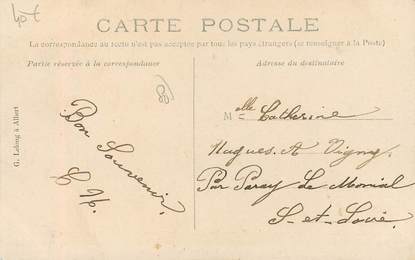 40€
CARTE POSTALE
La correspondance au recto n'est pas acceptée par tous les pays étrangers (se renseigner à la Poste)
Partie réservée à la correspondance
Adresse du destinataire
G. Lelong à Albert
Bon Souvenir.
Melle Catherine
Hugues. A Vigny
Par Paray Le Monial
S-et-Loire